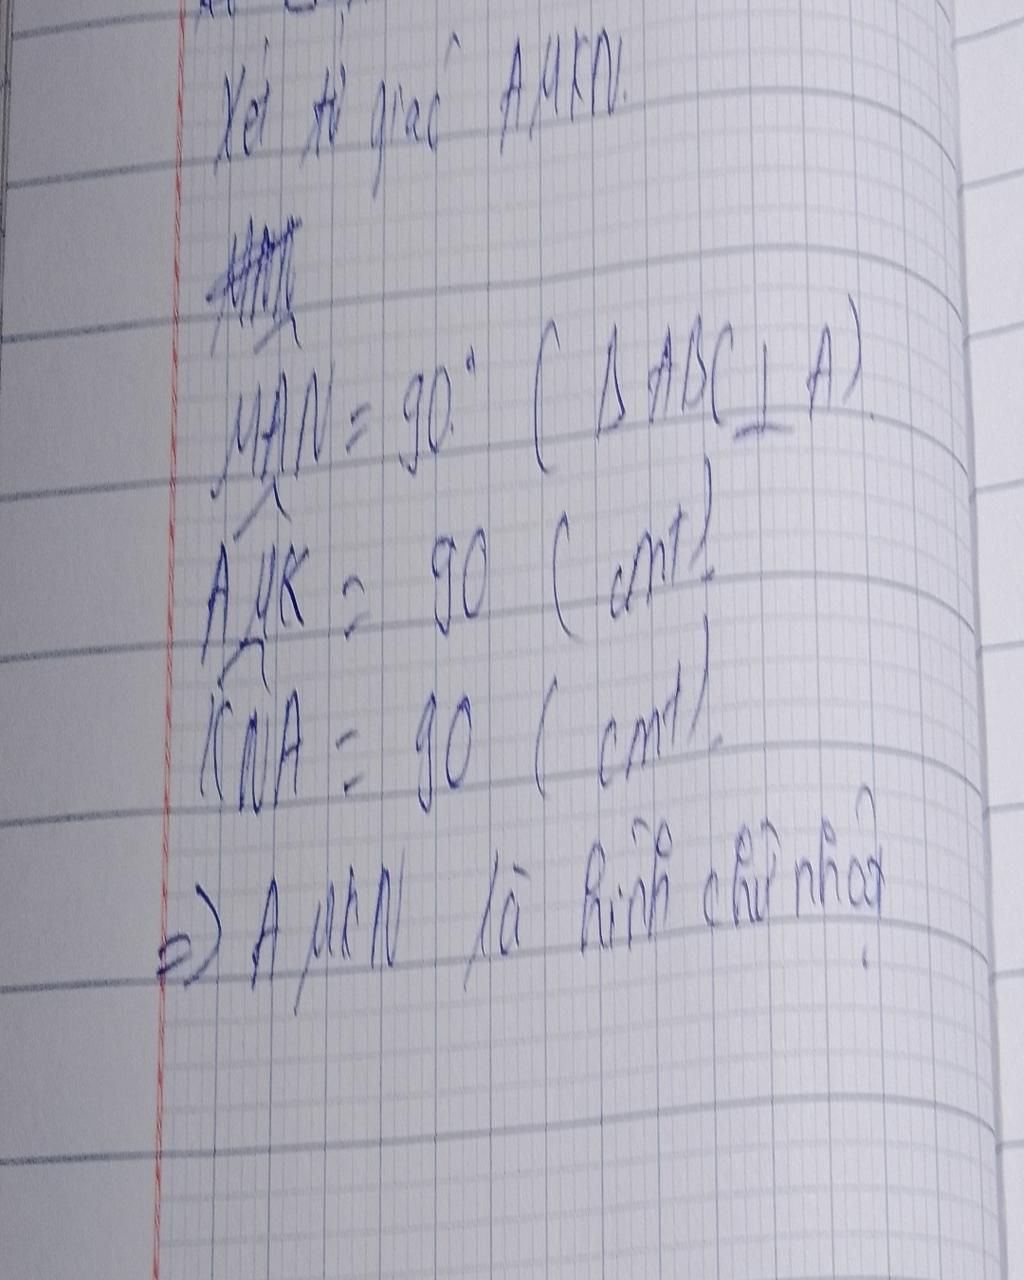 Xét tứ giác AMKN.
MAN = 90° ( Δ ABC ⊥ A)
AMK = 90 ( cmt ).
KNA = 90 ( cmt ).
=) AMKN là hình chữ nhật